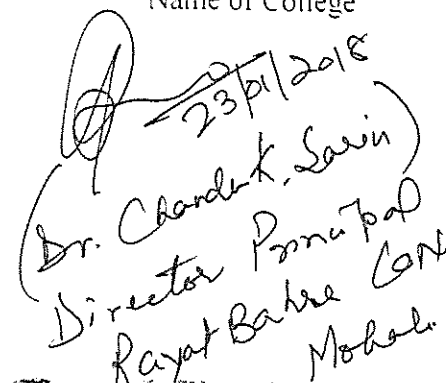 Name of College
23/01/2018
(Dr. Chander K. Sarin)
Director Principal
Rayat Bahra CON
Mohali